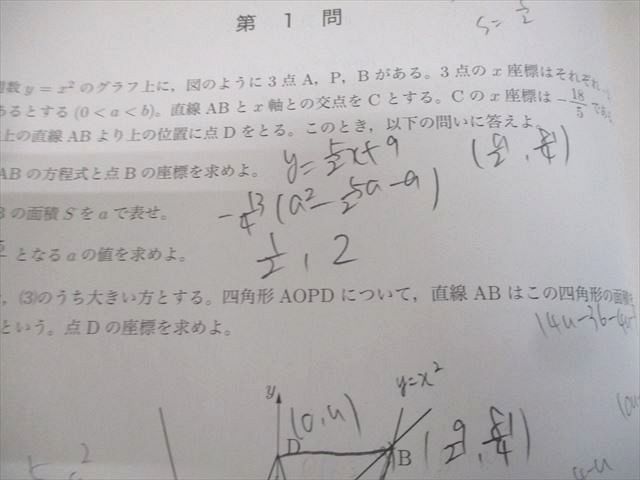 第 1 問
関数 y = x² のグラフ上に，図のように 3 点 A，P，B がある。3 点の x 座標はそれぞれ
あるとする (0 < a < b)。直線 AB と x 軸との交点を C とする。C の x 座標は −18/5 であ
上の直線 AB より上の位置に点 D をとる。このとき，以下の問いに答えよ。
AB の方程式と点 B の座標を求めよ。 y = 5/2 x + 9 (9/2, 81/4)
B の面積 S を a で表せ。 −13/4 (a² − 5/2 a − 9)
となる a の値を求めよ。 1/2 , 2
，(3)のうち大きい方とする。四角形 AOPD について，直線 AB はこの四角形の面積を
という。点 D の座標を求めよ。
y=x²
y
(0, u)
D
B (9/2, 81/4)